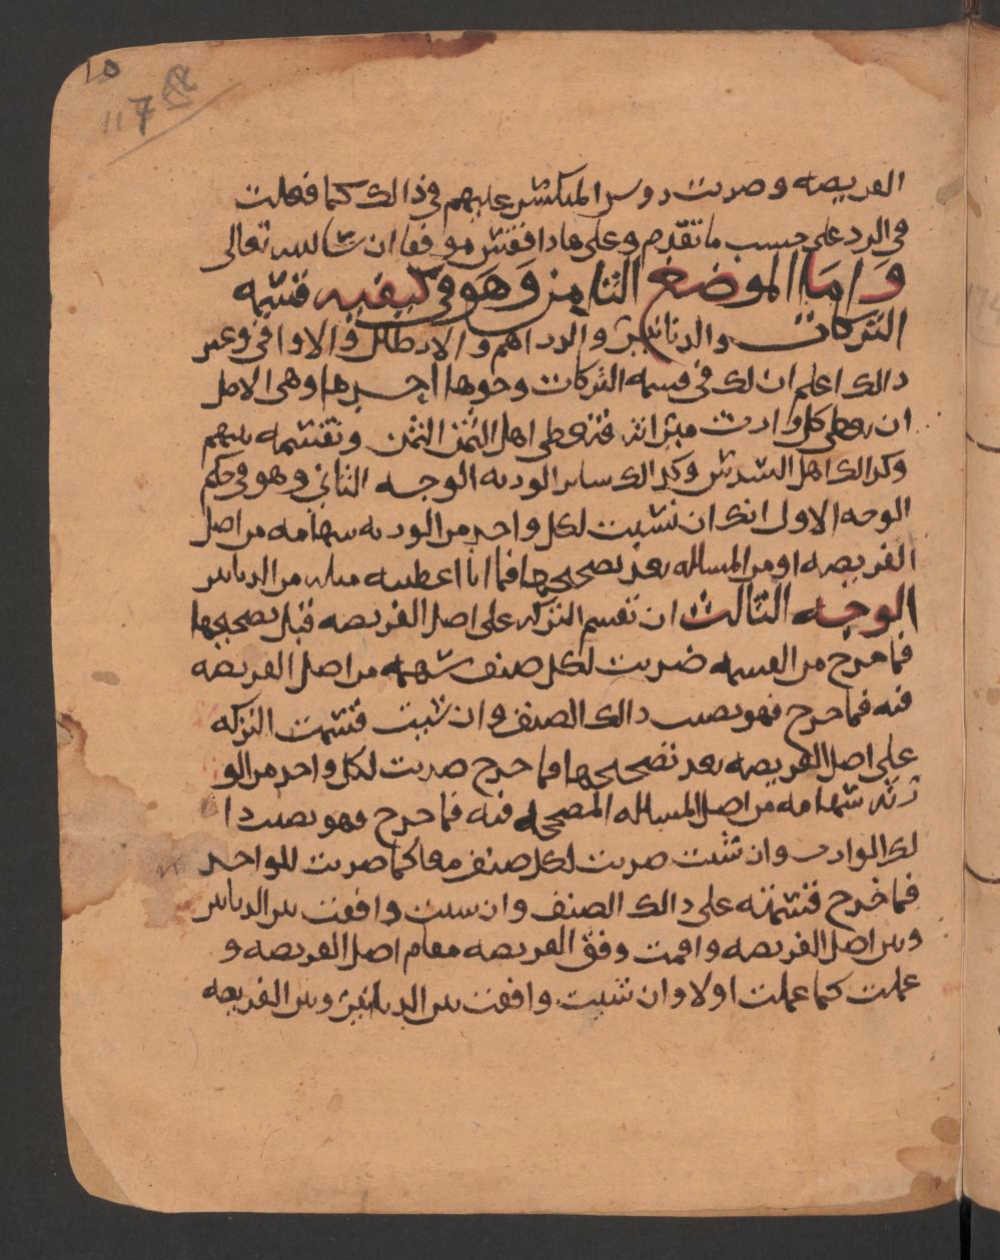 ١٥
117
الفريضه وضربت روس المنكسر عليهم في ذالك كما فعلت
في الرد على حسب ما تقدم وعلى هاذا فقس موفقا ان شا الله تعالى
واما الموضع الثامن وهو في كيفيه قسمه
التركات والدنانير والدراهم والارطال والاواقي وغير
ذالك اعلم ان لك في قسمه التركات وجوها احدها وهي الاصل
ان يعطى كل وارث ميراثه فتعطي اهل الثمن الثمن وتقسمه بينهم
وكذالك اهل السدس وكذالك ساير الورثه الوجه الثاني وهو في حكم
الوجه الاول انك ان نسبت لكل واحد من الورثه سهامه من اصل
الفريضه او من المساله بعد تصحيحها فما اتا اعطيته مثله من الدنانير
الوجه الثالث ان تقسم التركه على اصل الفريضه قبل تصحيحها
فما خرج من القسمه ضربت لكل صنف سهمه من اصل الفريضه
فيه فما خرج فهو نصيب ذالك الصنف وان شيت قسمت التركه
على اصل الفريضه بعد تصحيحها فما خرج ضربت لكل واحد من الو
رثه سهامه من اصل المساله المصححه فيه فما خرج فهو نصيب ذا
لك الوارث وان شيت ضربت لكل صنف معا كما ضربت للواحد
فما خرج قسمته على ذالك الصنف وان شيت وافقت بين الدنانير
وبين اصل الفريضه واقمت وفق الفريضه مقام اصل الفريضه و
عملت كما عملت اولا وان شيت وافقت بين الدنانير وبين الفريضه